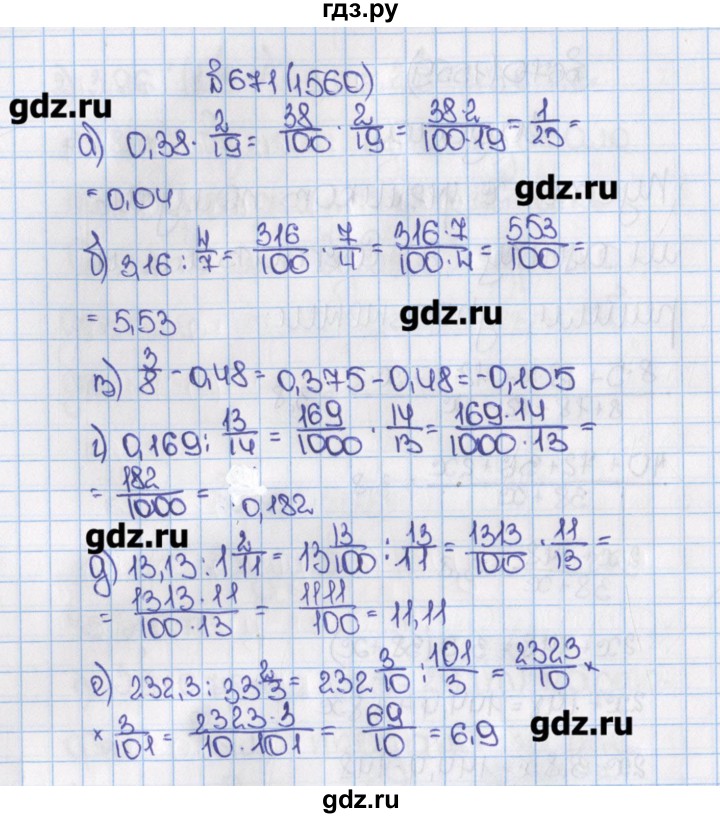 гдз.ру
№671(1560)
gdz.ru
а) 0,38 · 2/19 = 38/100 · 2/19 = 38·2/100·19 = 1/25 =
= 0,04
gdz.ru
б) 3,16 : 4/7 = 316/100 · 7/4 = 316·7/100·4 = 553/100 =
= 5,53
gdz.ru
в) 3/8 - 0,48 = 0,375 - 0,48 = -0,105
г) 0,169 : 13/14 = 169/1000 · 14/13 = 169·14/1000·13 =
= 182/1000 = 0,182
gdz.ru
д) 13,13 : 1 2/11 = 13 13/100 : 13/11 = 1313/100 · 11/13 =
= 1313·11/100·13 = 1111/100 = 11,11
е) 232,3 : 33 2/3 = 232 3/10 : 101/3 = 2323/10 ×
× 3/101 = 2323·3/10·101 = 69/10 = 6,9
gdz.ru
gdz.ru